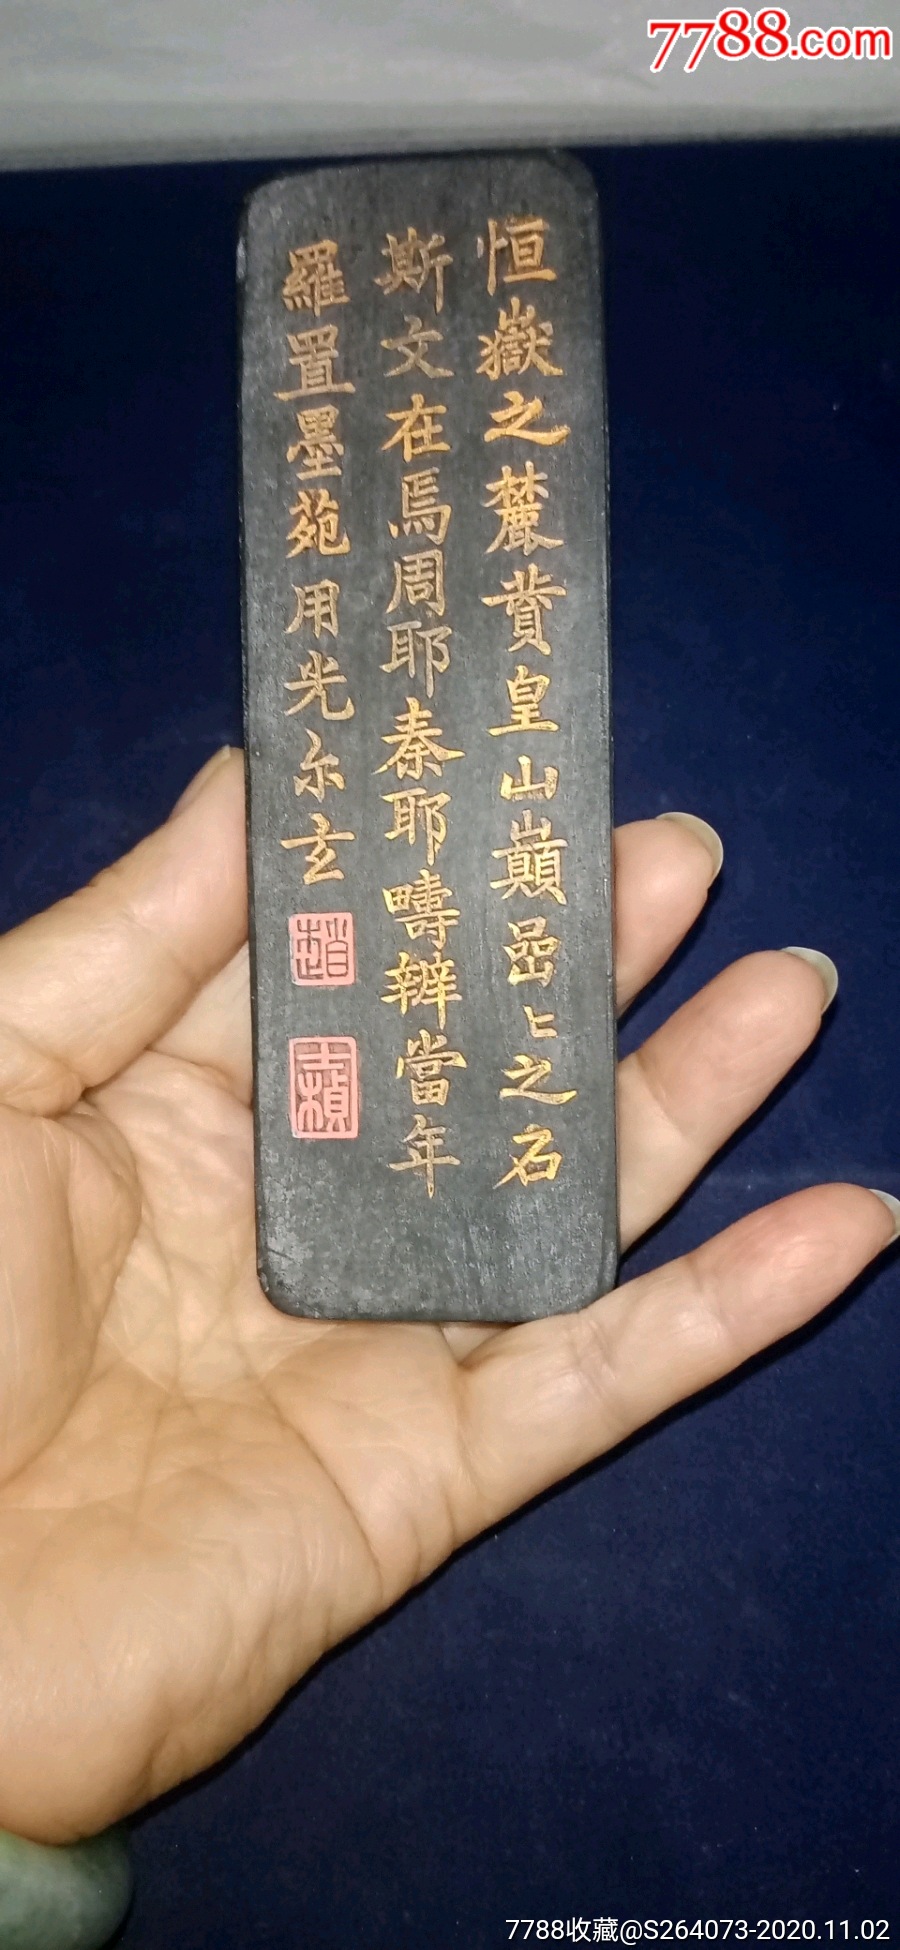 7788.com
恒嶽之麓賁皇山巔嵒〻之石
斯文在焉周耶秦耶疇辨當年
羅置墨苑用光尔玄
趙
士楨
7788收藏@S264073-2020.11.02